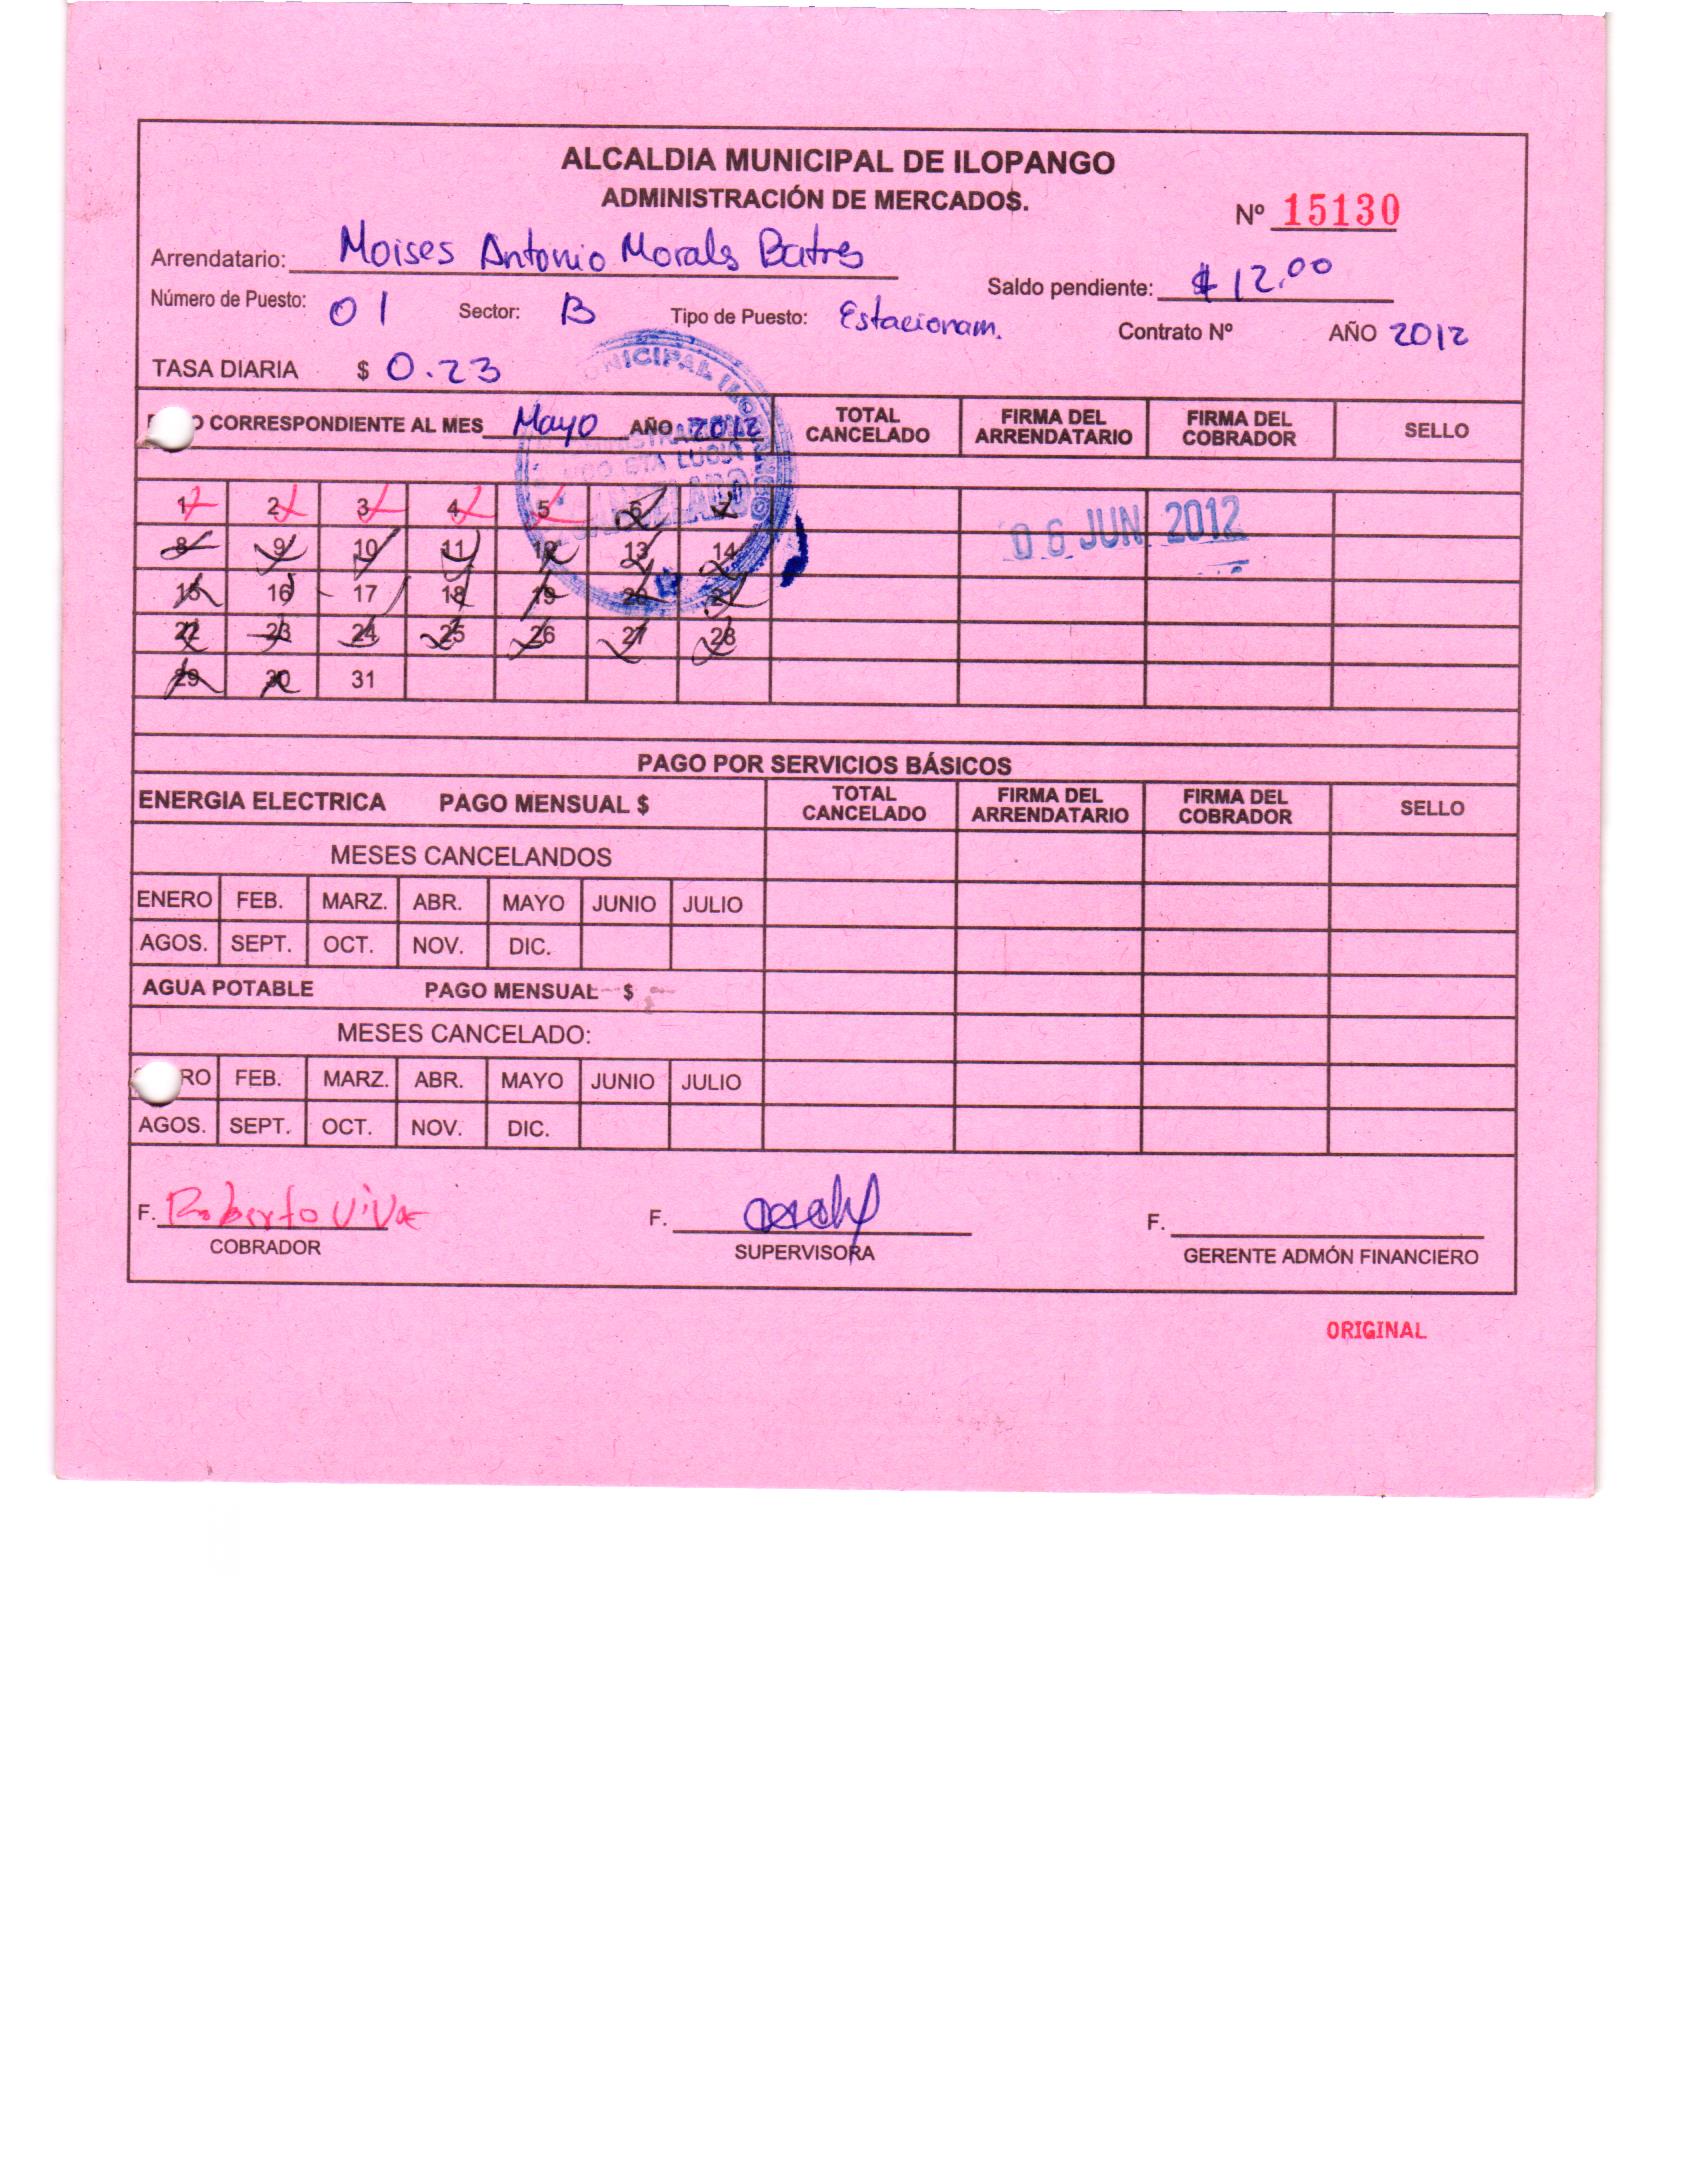 ALCALDIA MUNICIPAL DE ILOPANGO
ADMINISTRACIÓN DE MERCADOS.
Nº 15130
Arrendatario: Moises Antonio Morals Batres
Saldo pendiente: $12.00
Número de Puesto: 01 Sector: B Tipo de Puesto: Estacionam. Contrato Nº AÑO 2012
TASA DIARIA $ 0.23
CORRESPONDIENTE AL MES Mayo AÑO 2012 TOTAL CANCELADO FIRMA DEL ARRENDATARIO FIRMA DEL COBRADOR SELLO
1 2 3 4 5 6 7
06 JUN 2012
8 9 10 11 12 13 14
15 16 17 18 19 20 21
22 23 24 25 26 27 28
29 30 31
PAGO POR SERVICIOS BÁSICOS
ENERGIA ELECTRICA PAGO MENSUAL $ TOTAL CANCELADO FIRMA DEL ARRENDATARIO FIRMA DEL COBRADOR SELLO
MESES CANCELANDOS
ENERO FEB. MARZ. ABR. MAYO JUNIO JULIO
AGOS. SEPT. OCT. NOV. DIC.
AGUA POTABLE PAGO MENSUAL $
MESES CANCELADO:
RO FEB. MARZ. ABR. MAYO JUNIO JULIO
AGOS. SEPT. OCT. NOV. DIC.
F. Roberto F. F.
COBRADOR SUPERVISORA GERENTE ADMÓN FINANCIERO
ORIGINAL